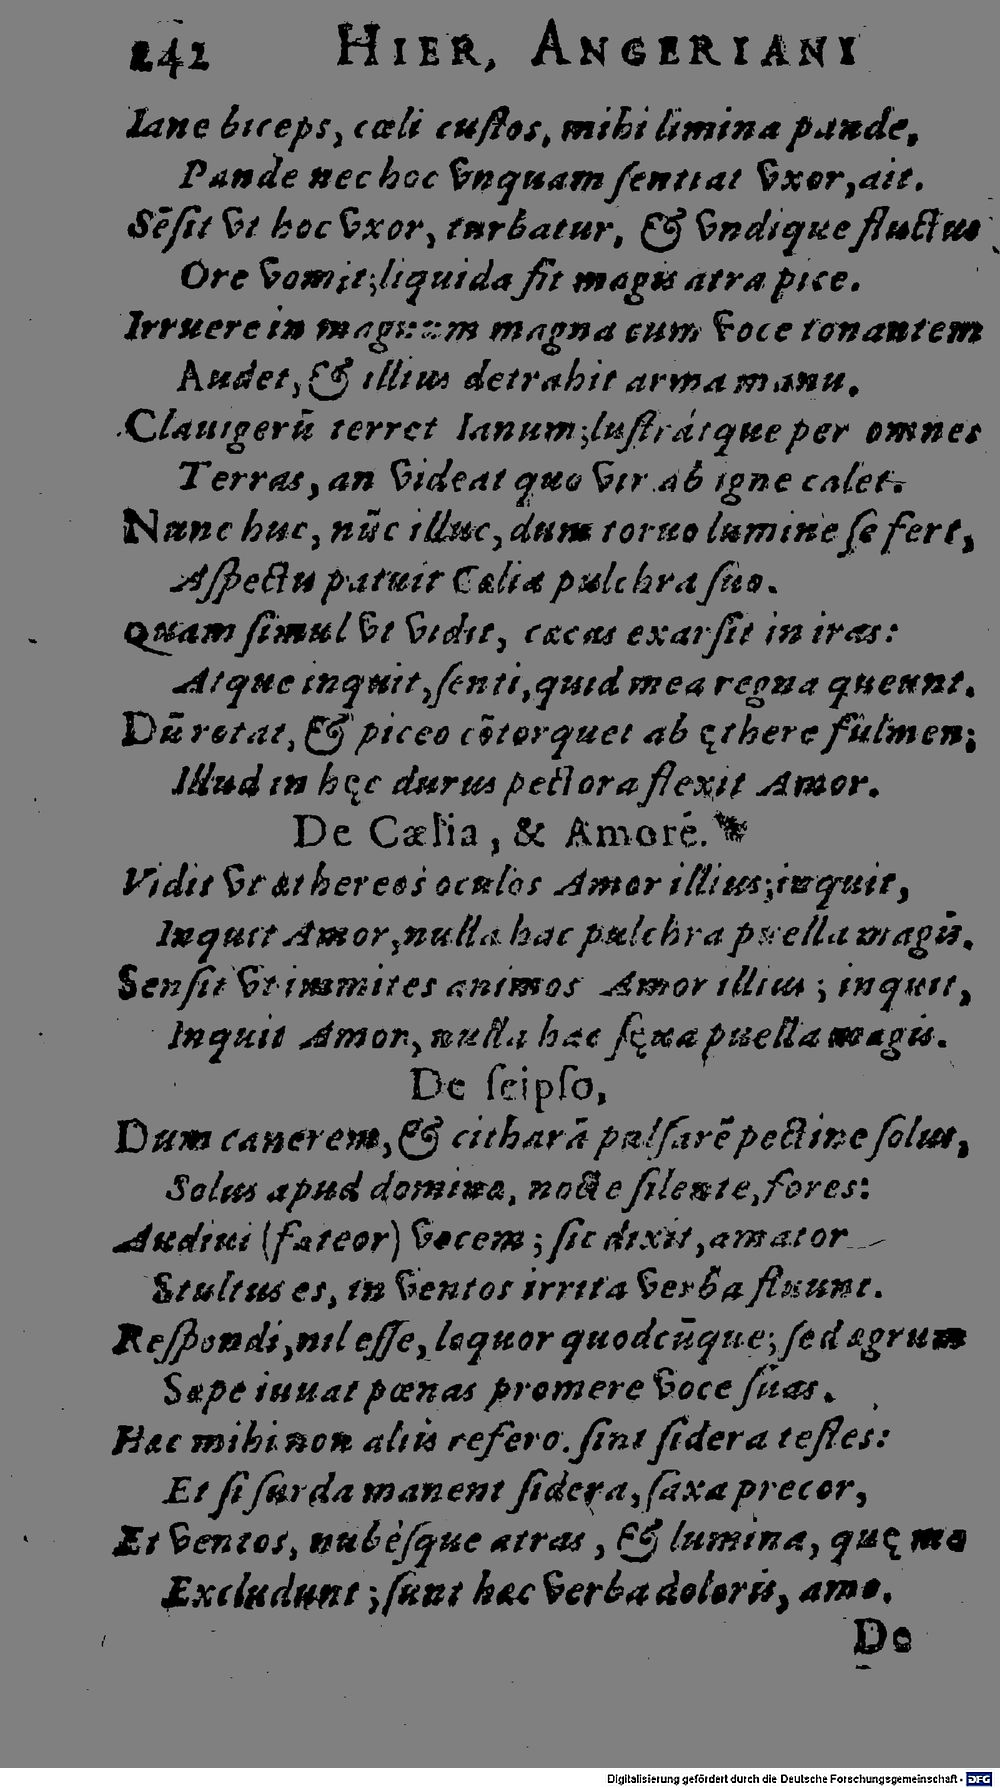 242 HIER, ANGERIANI
Iane biceps, cæli cuſtos, mihi limina pande,
Pande nec hoc vnquam ſentiat vxor, ait.
Sēſit vt hoc vxor, turbatur, & vndique fluctus
Ore vomit; liquida fit magis atra pice.
Irruere in magnum magna cum voce tonantem
Audet, & illius detrahit arma manu.
Clauigerū terret Ianum; luſtrátque per omnes
Terras, an videat quo vir ab igne calet.
Nunc huc, nūc illuc, dum toruo lumine ſe fert,
Aſpectu patuit Cælia pulchra ſuo.
Quam ſimul vt vidit, cæcas exarſit in iras:
Atque inquit, ſenti, quid mea regna queunt.
Dū rotat, & piceo cōtorquet ab ęthere fulmen;
Illud in hęc durus pectora flexit Amor.
De Cælia, & Amore.
Vidit vt æthereos oculos Amor illius; inquit,
Inquit Amor, nulla hac pulchra puella magis.
Senſit vt immites animos Amor illius; inquit,
Inquit Amor, nulla hac ſęua puella magis.
De ſeipſo,
Dum canerem, & citharā pulſarē pectine ſolus,
Solus apud domina, nocte ſilente, fores:
Audiui (fateor) vocem; ſic dixit, amator
Stultus es, in ventos irrita verba fluunt.
Reſpondi, nil eſſe, loquor quodcūque; ſed ægrum
Sæpe iuuat pœnas promere voce ſuas.
Hæc mihi non aliis refero. ſint ſidera teſtes:
Et ſi ſurda manent ſidera, ſaxa precor,
Et ventos, nubéſque atras, & lumina, quę me
Excludunt; ſunt hæc verba doloris, amo.
De
Digitalisierung gefördert durch die Deutsche Forschungsgemeinschaft - DFG